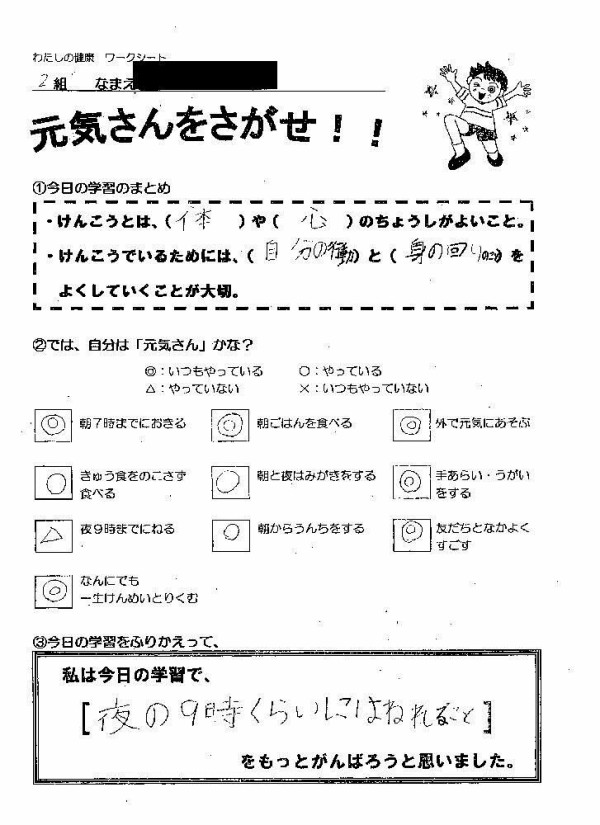 わたしの健康 ワークシート
2組 なまえ
元気さんをさがせ!!
①今日の学習のまとめ
・けんこうとは、(体)や(心)のちょうしがよいこと。
・けんこうでいるためには、(自分の行動)と(身の回りのこと)を
よくしていくことが大切。
②では、自分は「元気さん」かな?
◎:いつもやっている ○:やっている
△:やっていない ×:いつもやっていない
◎ 朝7時までにおきる ◎ 朝ごはんを食べる ◎ 外で元気にあそぶ
○ きゅう食をのこさず食べる ○ 朝と夜はみがきをする ◎ 手あらい・うがいをする
△ 夜9時までにねる ○ 朝からうんちをする ◎ 友だちとなかよくすごす
◎ なんにでも一生けんめいとりくむ
③今日の学習をふりかえって、
私は今日の学習で、
[夜の9時くらいにはねれること]
をもっとがんばろうと思いました。